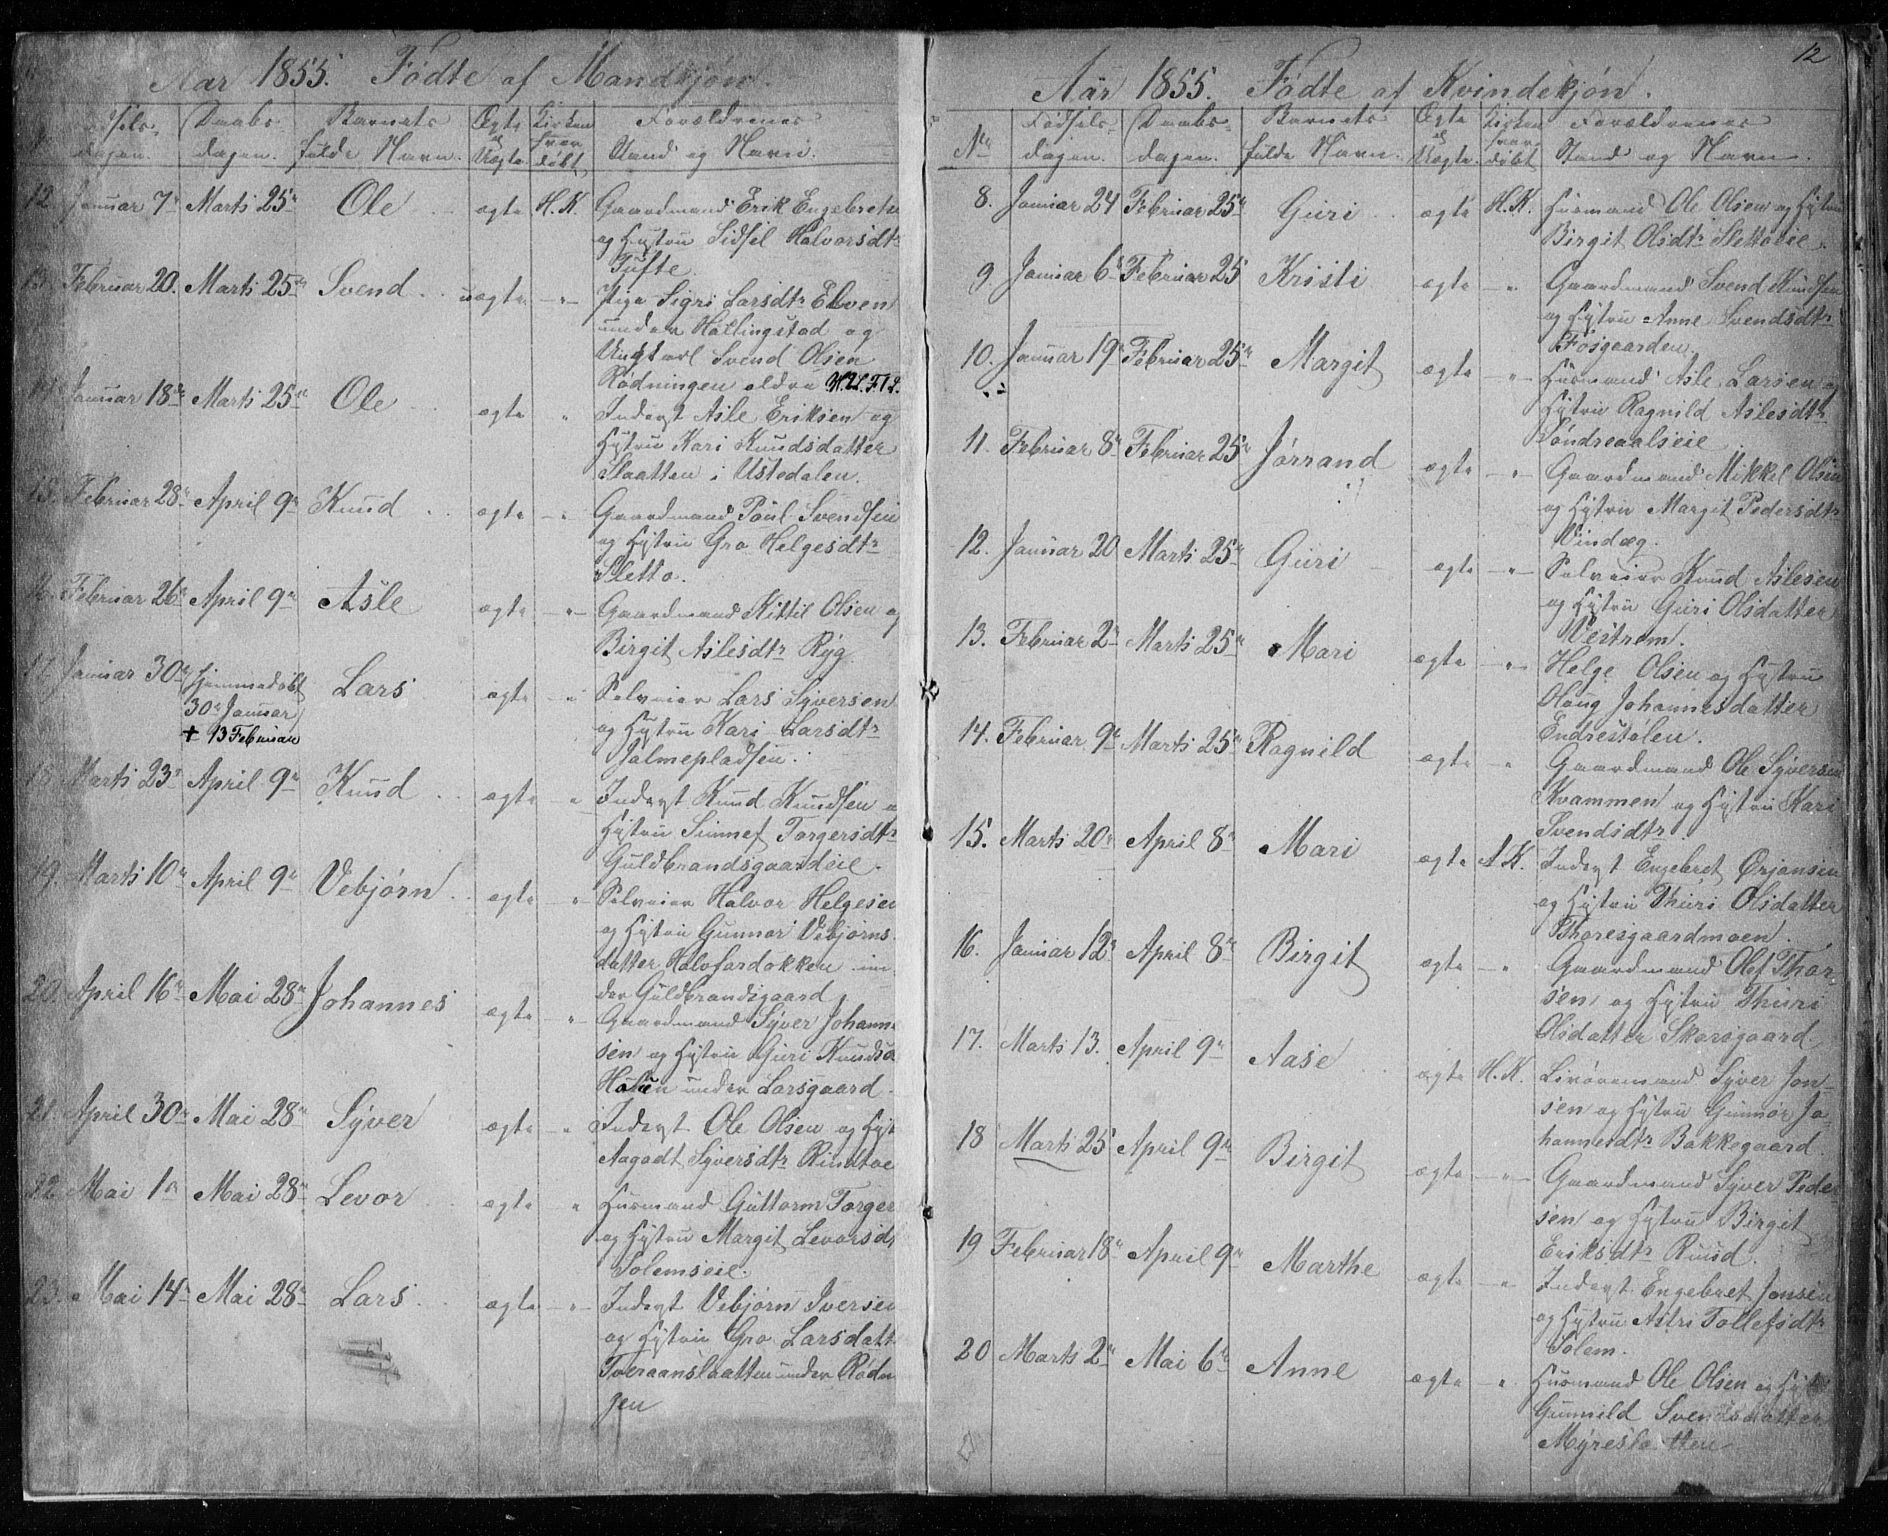 Aar 1855. Fødte af Mandkjøn.
dagen. Daabs- dagen. Barnets fulde Navn. Ægte el Uægte. Kirken hvor døbt Forældrenes Stand og Navn.
12. Januar 7de Marts 25de Ole ægte H.K. Gaardmand Erik Engebrets
og Hustru Sidsel Halvorsdtr
Tufte.
13. Februar 20. Marts 25de Svend uægte -"- Pige Sigri Larsdtr Elven
under Hallingstad og
Ungkarl Svend Olsen
Rødningen eldre
14. Januar 18de Marts 25de Ole ægte " Inderst Asle Eriksen og
Hustru Kari Knudsdatter
Slaatten i Ustedalen.
15. Februar 28de April 9de Knud ægte -"- Gaardmand Paul Svendsen
og Hustru Gro Helgesdtr
Sletto.
16. Februar 26de April 9de Asle ægte -"- Gaardmand Kittil Olsen og
Birgit Aslesdtr Ryg
17. Januar 30de Hjemmedøbt Lars ægte " Selveier Lars Syversen
30de Januar og Hustru Kari Larsdtr
+ 13 Februar Jalmepladsen.
18. Marts 23de April 9de Knud ægte " Inderst Knud Knudsen
Hustru Sinnef Torgersdtr
Guldbrandsgaardeie.
19. Marts 10de April 9de Vebjørn ægte " Selveier Halvor Helgesen
og Hustru Gunnor Vebjørns-
datter Halvfardokken un-
der Guldbrandsgaard
20. April 16de Mai 28de Johannes ægte -"- Gaardmand Syver Johanne
sen og Hustru Guri Knudsd
under Larsgaard
21. April 30de Mai 28de Syver ægte -"- Inderst Ole Olsen og Hust
Aagodt Syversdtr
22. Mai 1ste Mai 28de Levor ægte " Husmand Guttorm Torger
og Hustru Margit Levorsdt
Solemseie.
23. Mai 14de Mai 28de Lars ægte -"- Inderst Vebjørn Iversen
og Hustru Gro Larsdatt
Tveraanslaatten under Rødn
gen
12
Aar 1855. Fødte af Kvindekjøn.
No Fødsels- dagen. Daabs- dagen. Barnets fulde Navn. Ægte el Uægte. Kirken hvor døbt Forældrenes Stand og Navn.
8. Januar 24 Februar 25de Guri ægte H.K. Husmand Ole Olsen og Hustru
Birgit Olsdtr Slettoeie.
9. Januar 6te Februar 25 Kristi ægte -"- Gaardmand Svend Knudsen
og Hustru Anne Svendsdtr
Fosgaarden.
10. Januar 19de Februar 25de Margit ægte -"- Husmand Asle Larsen og
Hustru Ragnild Aslesdtr
Søndreaalseie
11. Februar 8de Februar 25de Jørrand ægte -"- Gaardmand Mikkel Olsen
og Hustru Margit Pedersdtr
Vindæg.
12. Januar 20 Marts 25de Guri ægte -"- Selveier Knud Aslesen
og Hustru Guri Olsdatter
Vestrem.
13. Februar 2den Marts 25de Mari ægte -"- Helge Olsen og Hustru
Olaug Johannesdatter
Endrestølen.
14. Februar 9de Marts 25de Ragnild ægte " Gaardmand Ole Syversen
Kvammen og Hustru Kari
Svendsdtr
15. Marts 20de April 8de Mari ægte A.K. Inderst Engebret Ørjansen
og Hustru Thuri Olsdatter
Thoresgaardmoen.
16. Januar 12te April 8de Birgit ægte -"- Gaardmand Olef Thor
sen og Hustru Thuri
Olsdatter Skarsgaard.
17. Marts 13. April 9de Aase ægte H.K. Livøremand Syver Jon-
sen og Hustru Gunnor Jo-
hannesdtr Bakkegaard.
18 Marts 25 April 9de Birgit ægte -"- Gaardmand Syver Peder
sen og Hustru Birgit
Eriksdtr Ruud.
19 Februar 18de April 9de Marthe ægte -"- Inderst Engebret Jonsen
og Hustru Astri Tollefsdtr
Solem.
20 Marts 2den Mai 6te Anne ægte -"- Husmand Ole Olsen og Hust
Gunnild Svendsdatter
Myreslaatten